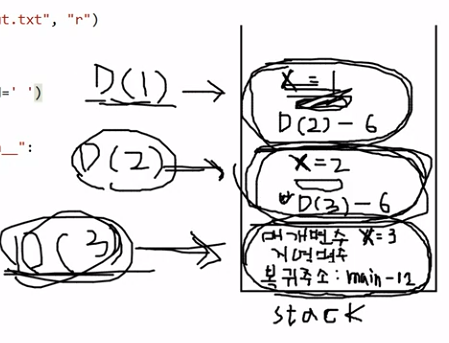 ut.txt", "r")
=' ')
__":
D(1)
x = 1
D(2)-6
D(2)
x=2
D(3)-6
D(3)
매개변수 x=3
지역변수
복귀주소: main-12
stack